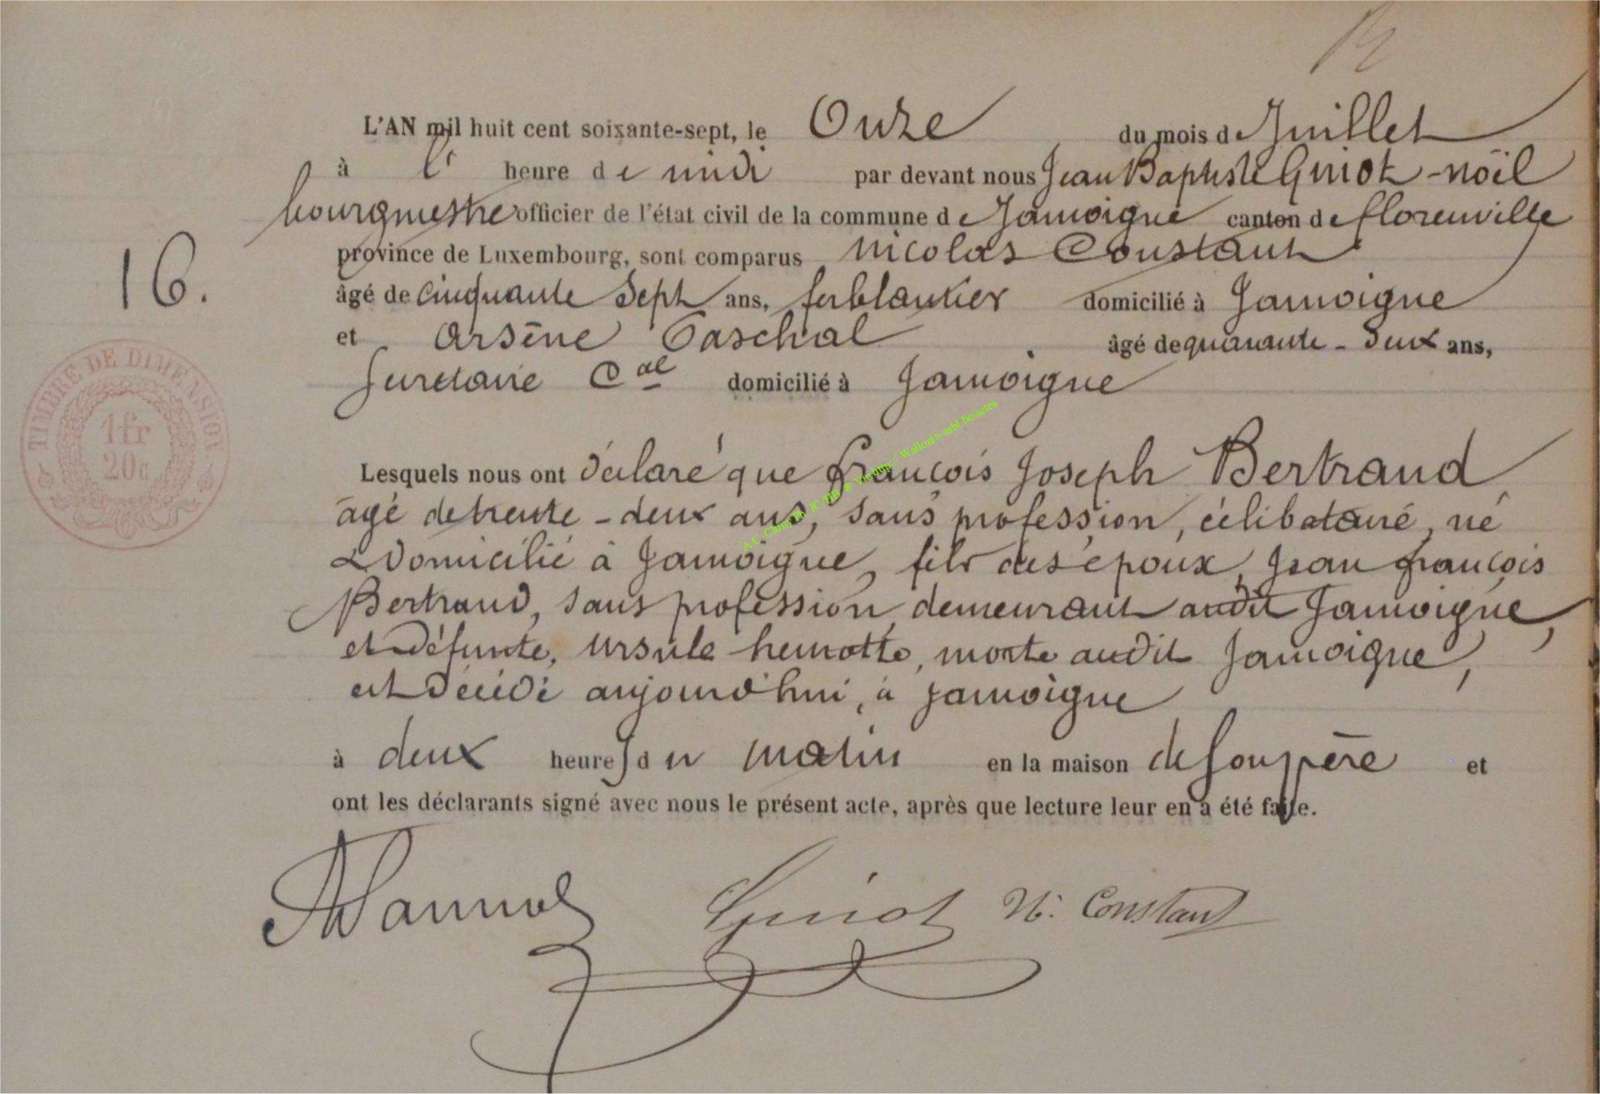 L'AN mil huit cent soixante-sept, le Onze du mois de Juillet
à l' heure de midi par devant nous Jean Baptiste Guiot-Noël
bourgmestre officier de l'état civil de la commune de Jamoigne canton de florenville
province de Luxembourg, sont comparus Nicolas Constant
16.
âgé de cinquante Sept ans, ferblantier domicilié à Jamoigne
et Arsène Paschal âgé de quarante-deux ans,
Secretaire Cal domicilié à Jamoigne
TIMBRE DE DIMENSION
1fr
20c
Lesquels nous ont déclaré que françois Joseph Bertrand
âgé de trente-deux ans, sans profession, célibataire, né
& domicilié à Jamoigne, fils des époux, Jean françois
Bertrand, sans profession, demeurant audit Jamoigne,
et défunte, ursule hemotte, morte audit Jamoigne,
est décédé aujourd'hui, à Jamoigne
à deux heures du matin en la maison de son père et
ont les déclarants signé avec nous le présent acte, après que lecture leur en a été faite.
Guiot N. Constant